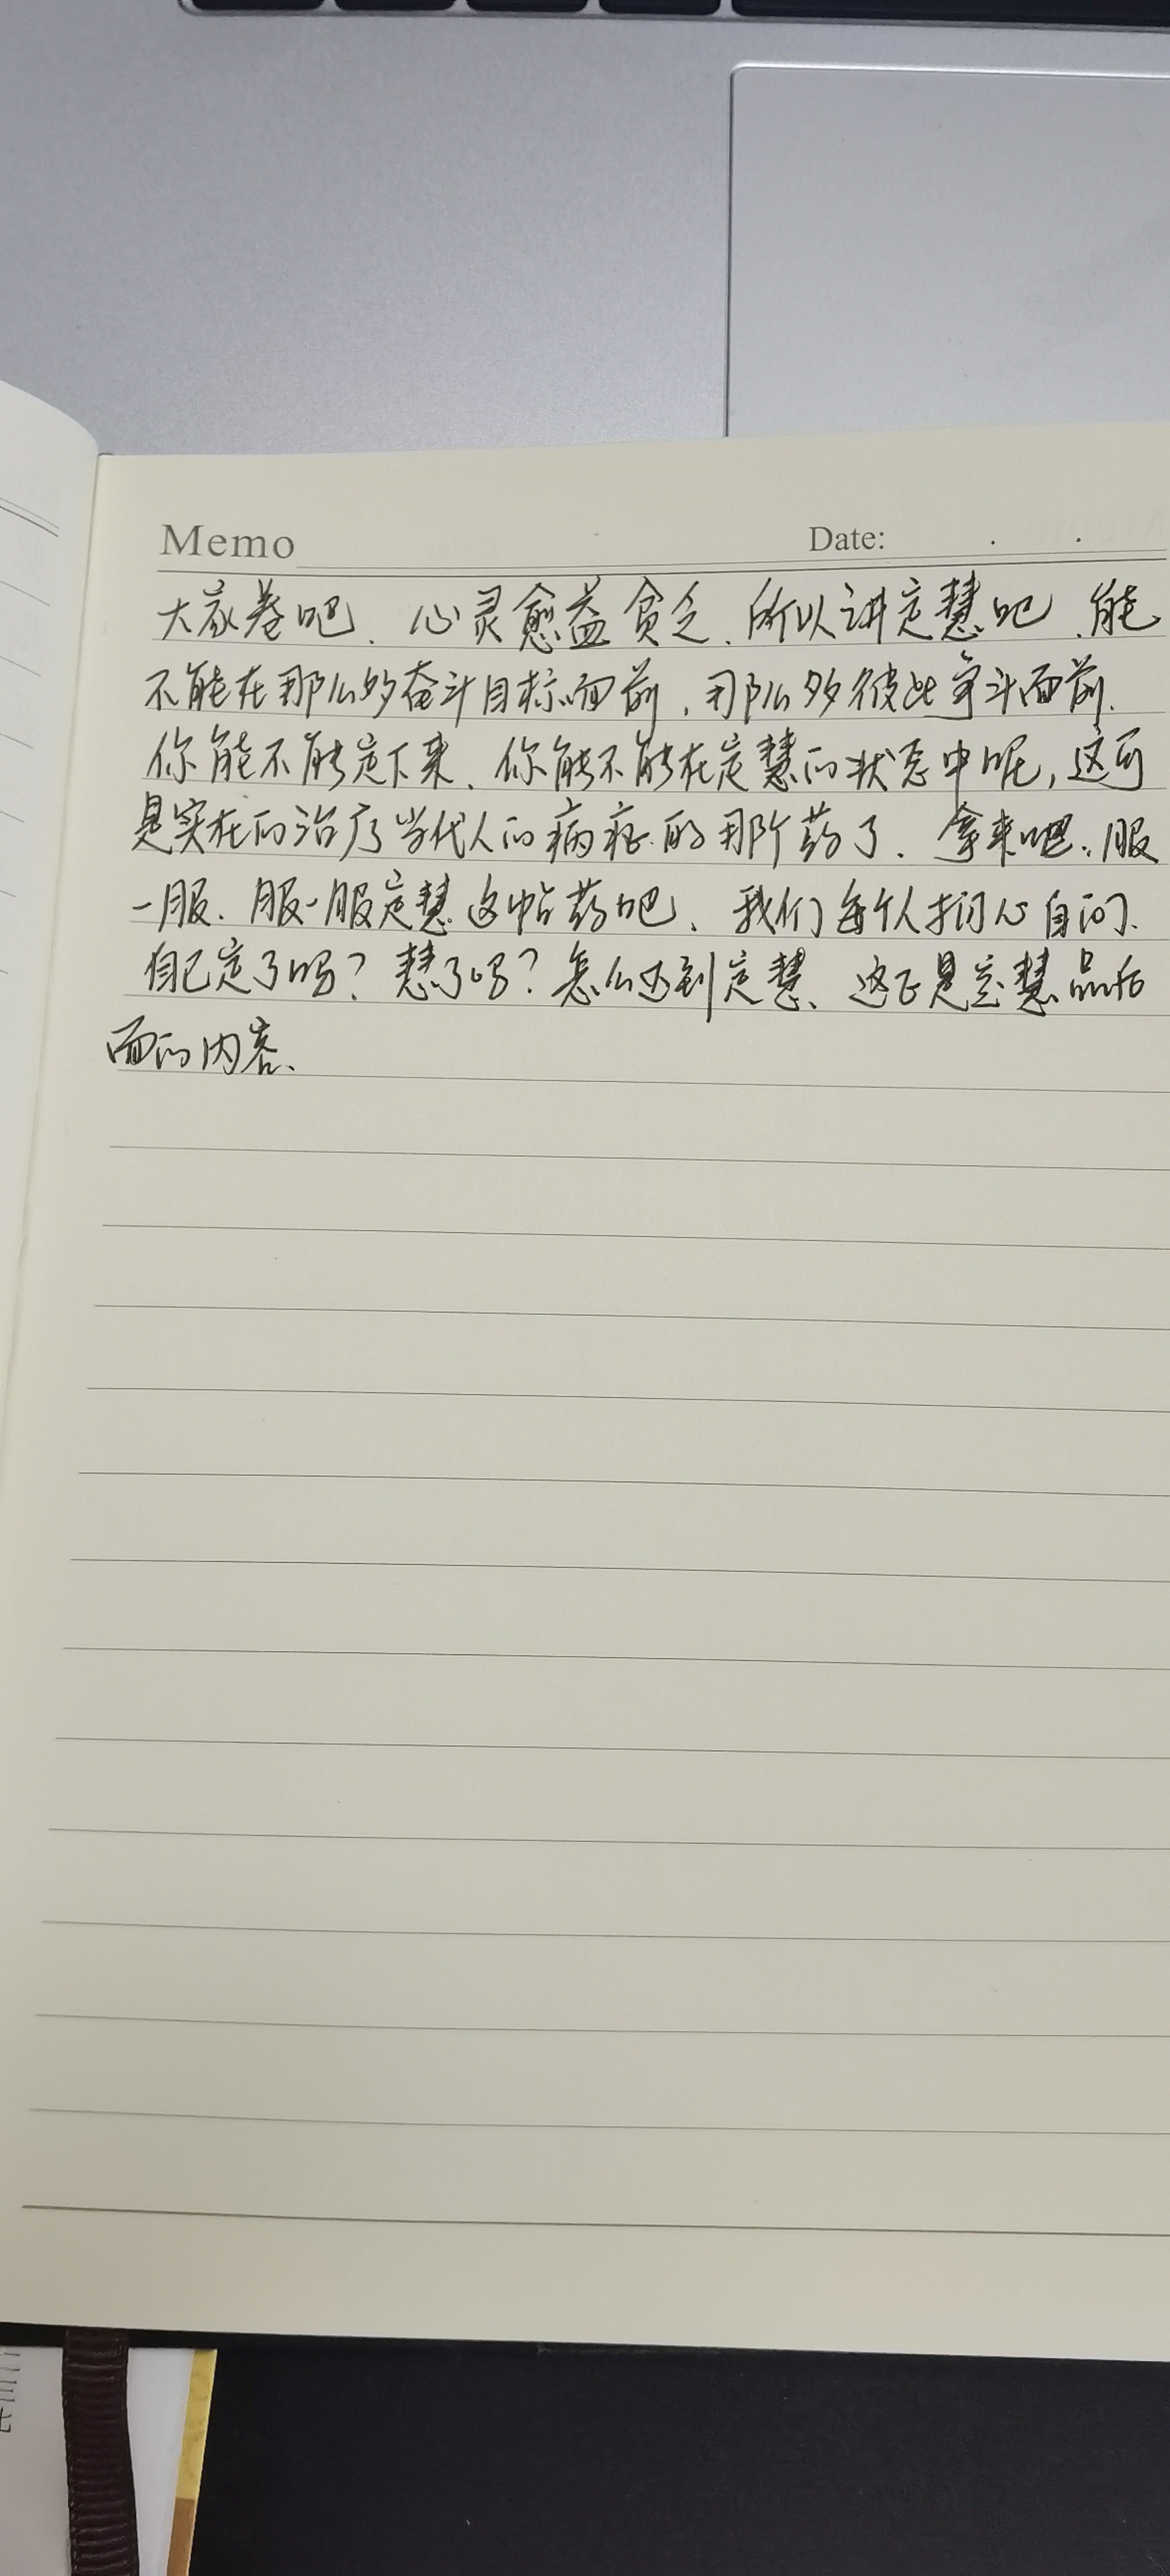 Memo Date: . .
大家卷吧、心灵愈益贫乏、所以讲定慧吧、能
不能在那么多奋斗目标面前、那么多彼此争斗面前.
你能不能定下来、你能不能在定慧的状态中呢,这可
是实在的治疗当代人的病症的那个药了、拿来吧、服
一服、服一服定慧这帖药吧、我们每个人扪心自问、
自己定了吗?慧了吗?怎么达到定慧、这正是定慧品后
面的内容、